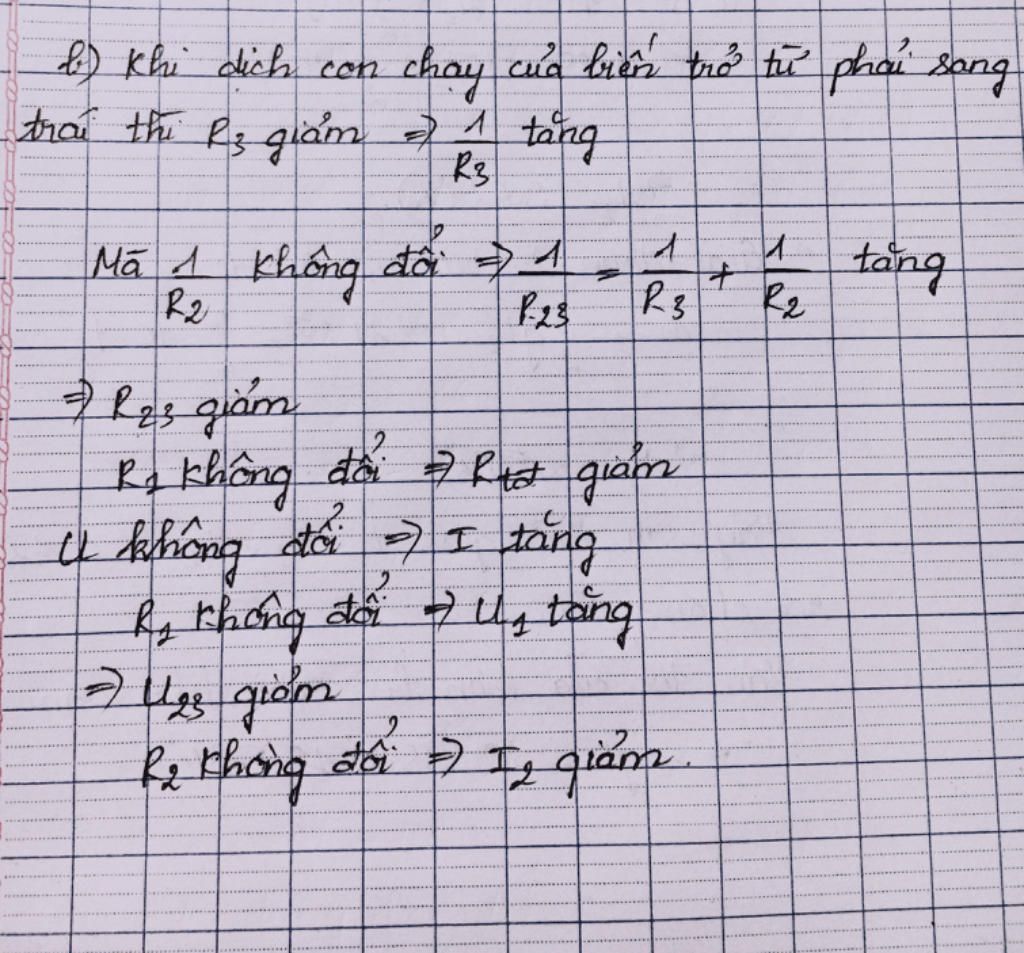 b) Khi dịch con chạy của biến trở từ phải sang
trái thì R3 giảm => 1/R3 tăng
Mà 1/R2 không đổi => 1/R23 = 1/R3 + 1/R2 tăng
=> R23 giảm
R1 không đổi => Rtđ giảm
U không đổi => I tăng
R1 không đổi => U1 tăng
=> U23 giảm
R2 không đổi => I2 giảm.